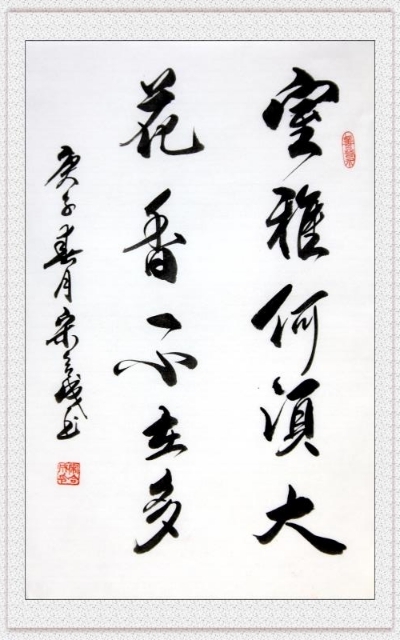 室雅何须大
花香不在多
庚子春月宋